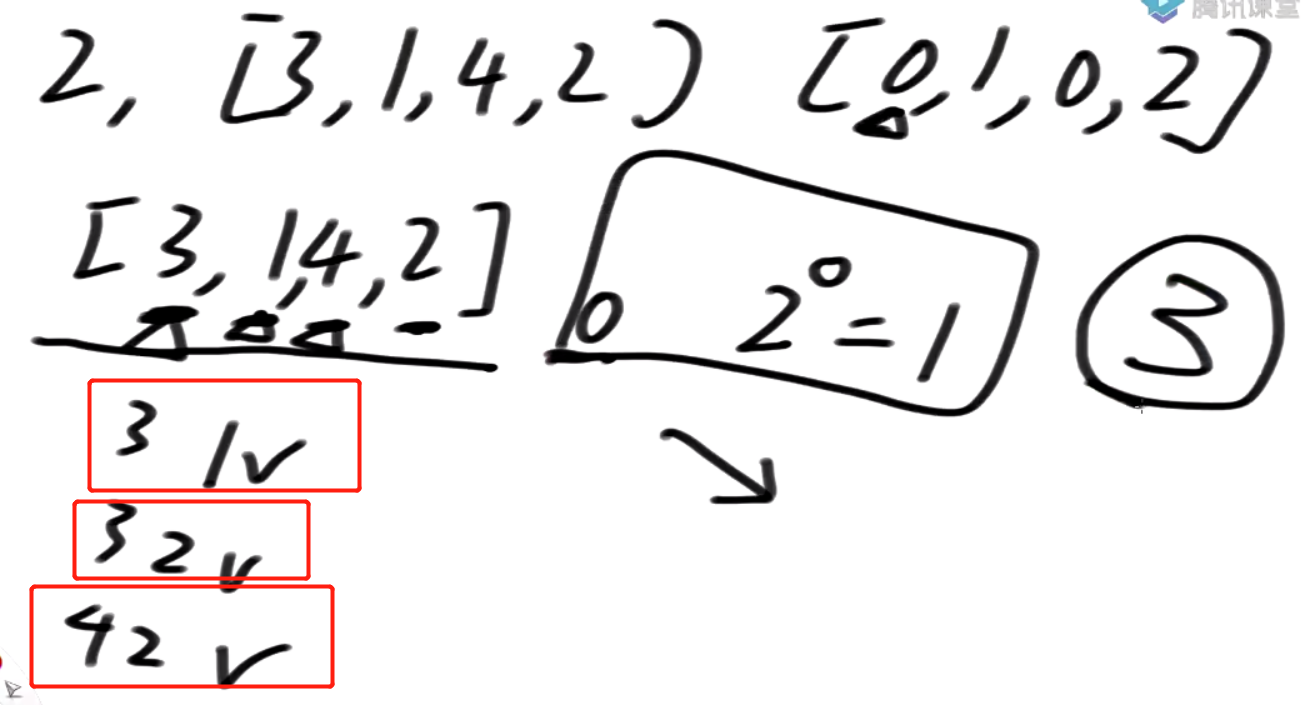 腾讯课堂
2, [3,1,4,2) [0,1,0,2]
[3,1,4,2]
0 2⁰=1 3
3 1 v
3 2 v
4 2 v